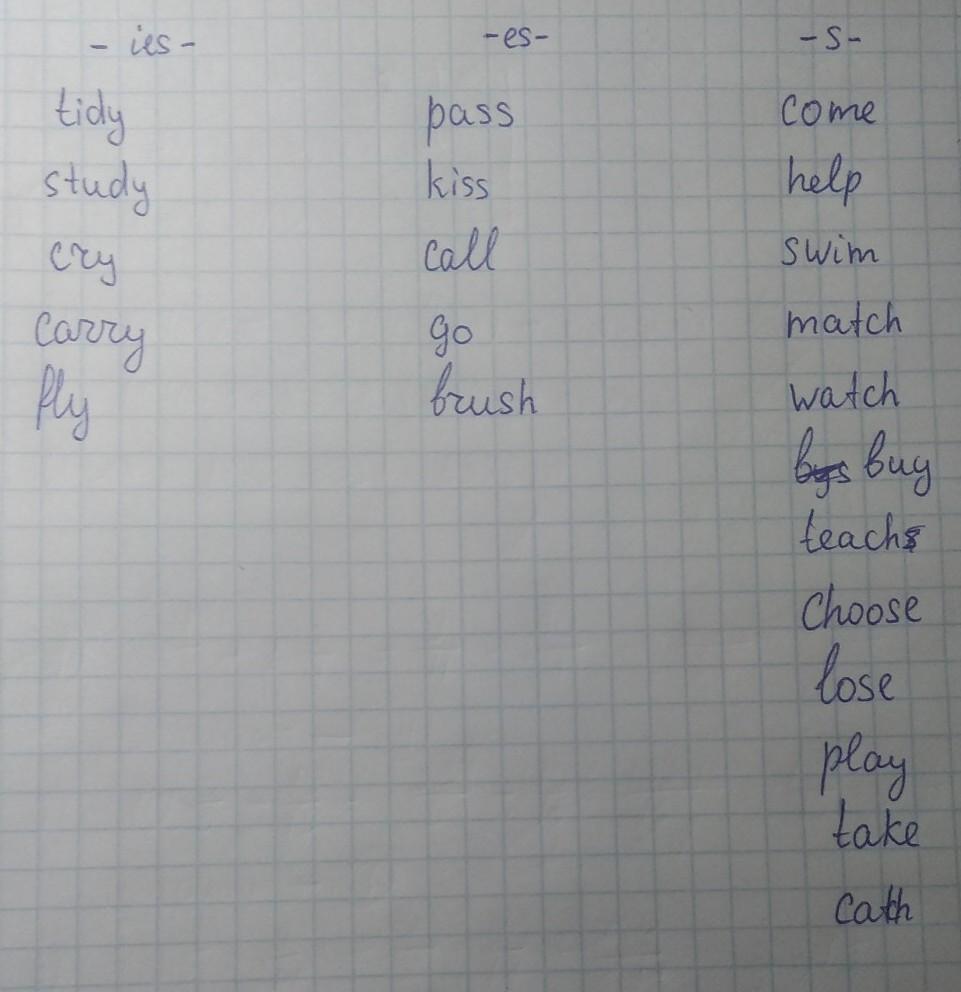 - ies - -es- -s-
tidy pass come
study kiss help
cry call swim
carry go match
fly brush watch
buy
teach
choose
lose
play
take
cath